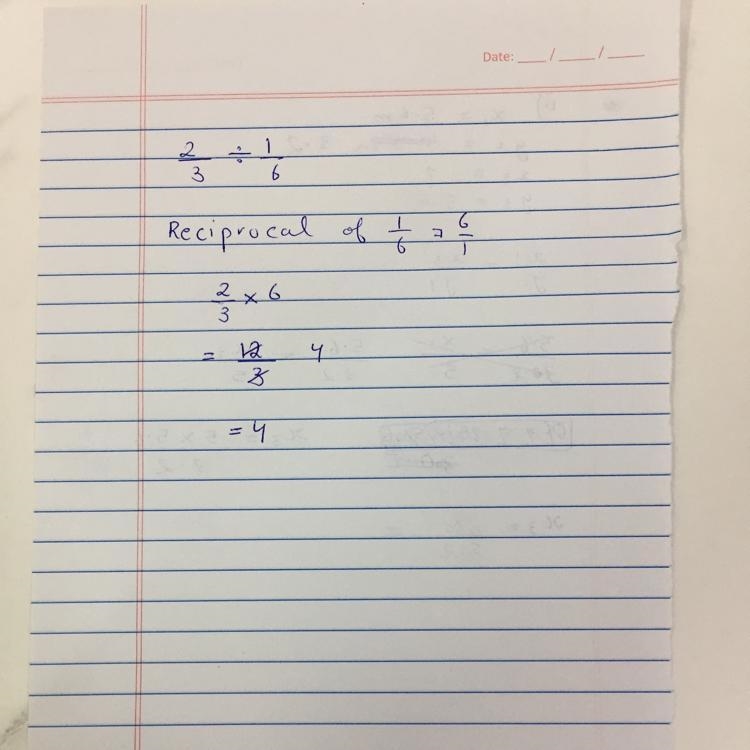 Date: ___/___/___
2/3 ÷ 1/6
Reciprocal of 1/6 = 6/1
2/3 × 6
= 12/3 4
= 4